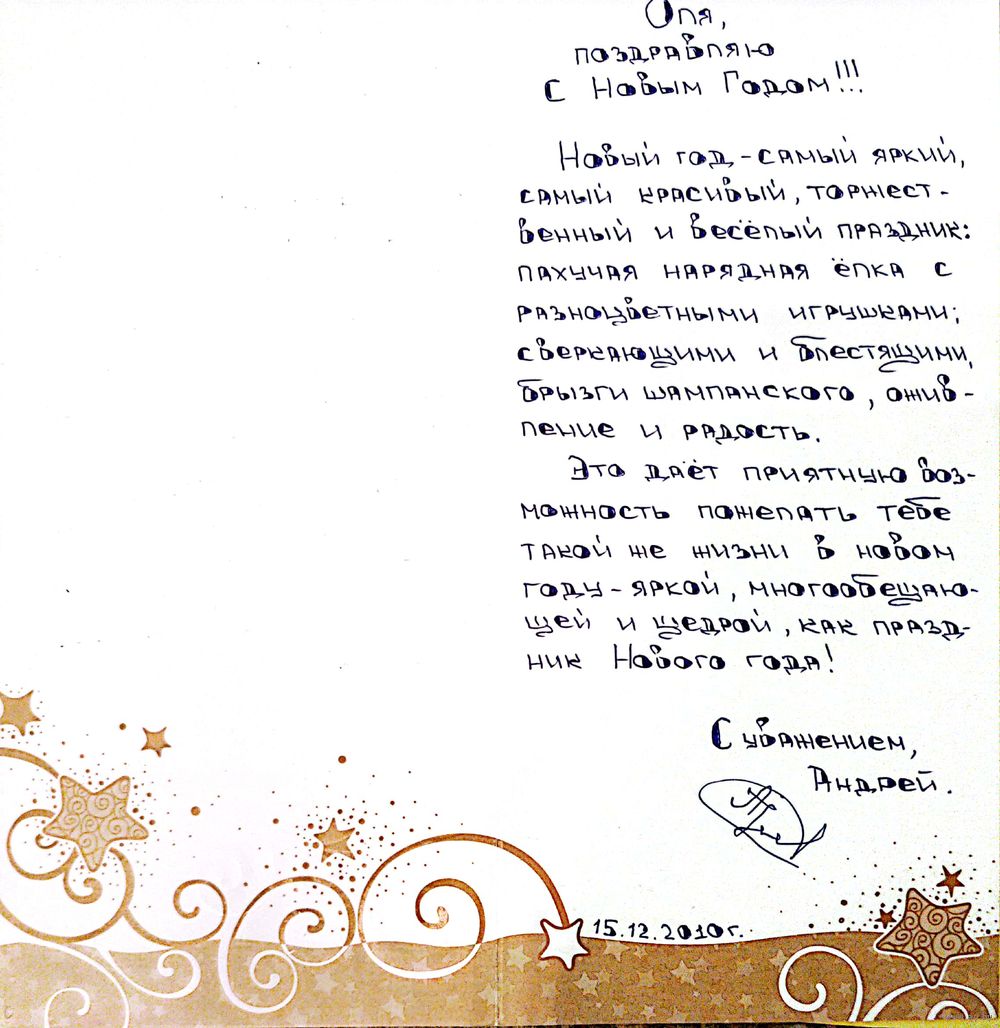 Оля,
поздравляю
с Новым Годом!!!
Новый год - самый яркий,
самый красивый, торжест-
венный и весёлый праздник:
пахучая нарядная ёлка с
разноцветными игрушками;
сверкающими и блестящими,
брызги шампанского, ожив-
ление и радость.
Это даёт приятную воз-
можность пожелать тебе
такой же жизни в новом
году - яркой, многообещаю-
щей и щедрой, как празд-
ник Нового года!
С уважением,
Андрей.
15.12.2010г.